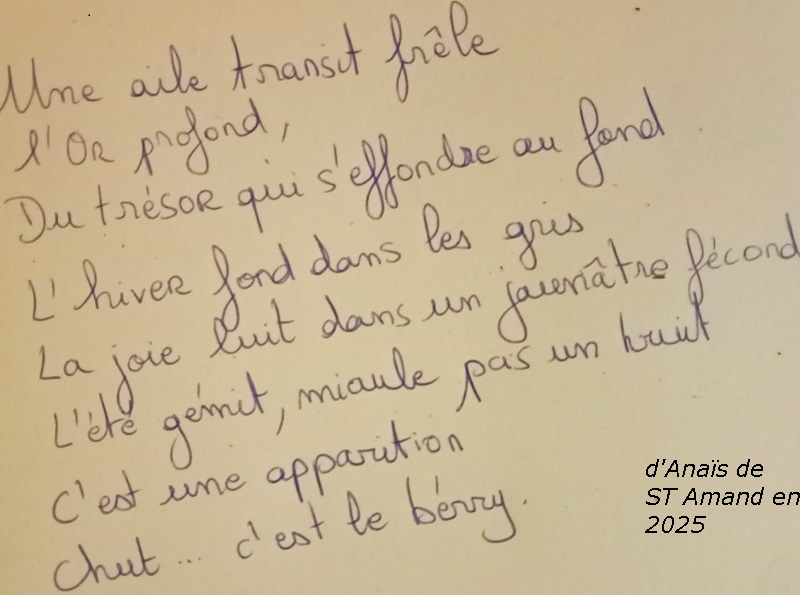 Une aile transit frêle
l'OR profond,
Du trésOR qui s'effondre au fond
L'hiveR fond dans les gris
La joie luit dans un jaunâtre fécond
L'été gémit, miaule pas un bruit
C'est une apparition
Chut... c'est le bérry.
d'Anaïs de
ST Amand en
2025